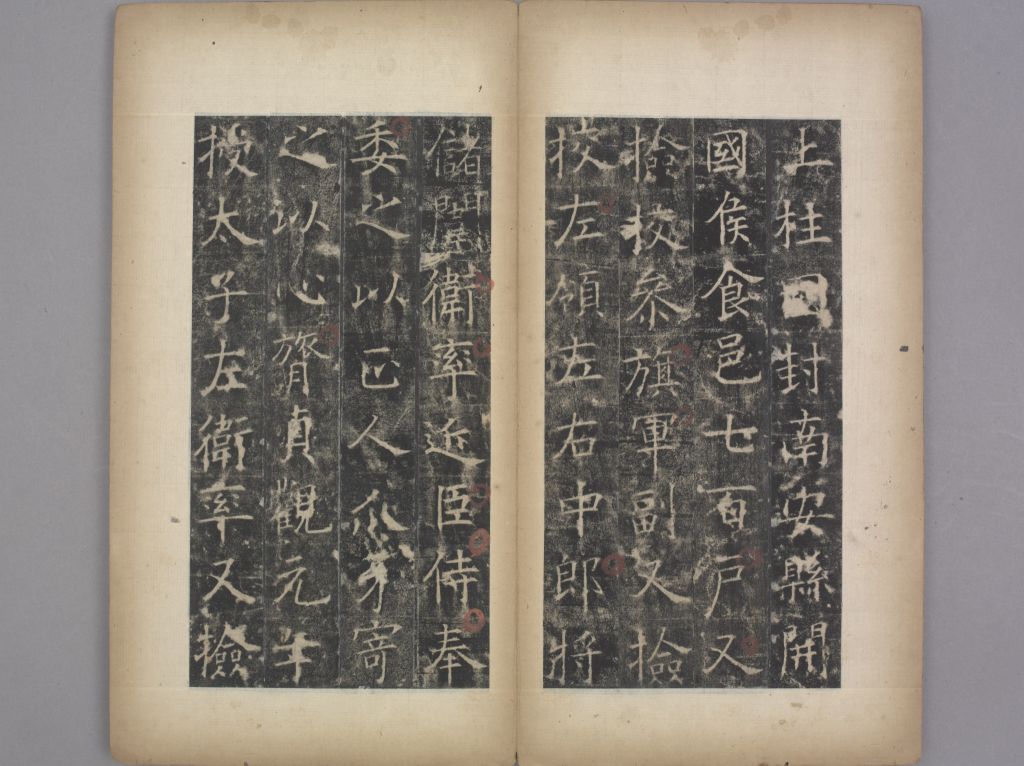 上柱國封南安縣開
國侯食邑七百戶又
撿校叅旗軍副又撿
校左領左右中郎將
儲闈衛率近臣侍奉
委之以正人爪牙寄
之以心膂貞觀元年
授太子左衛率又撿